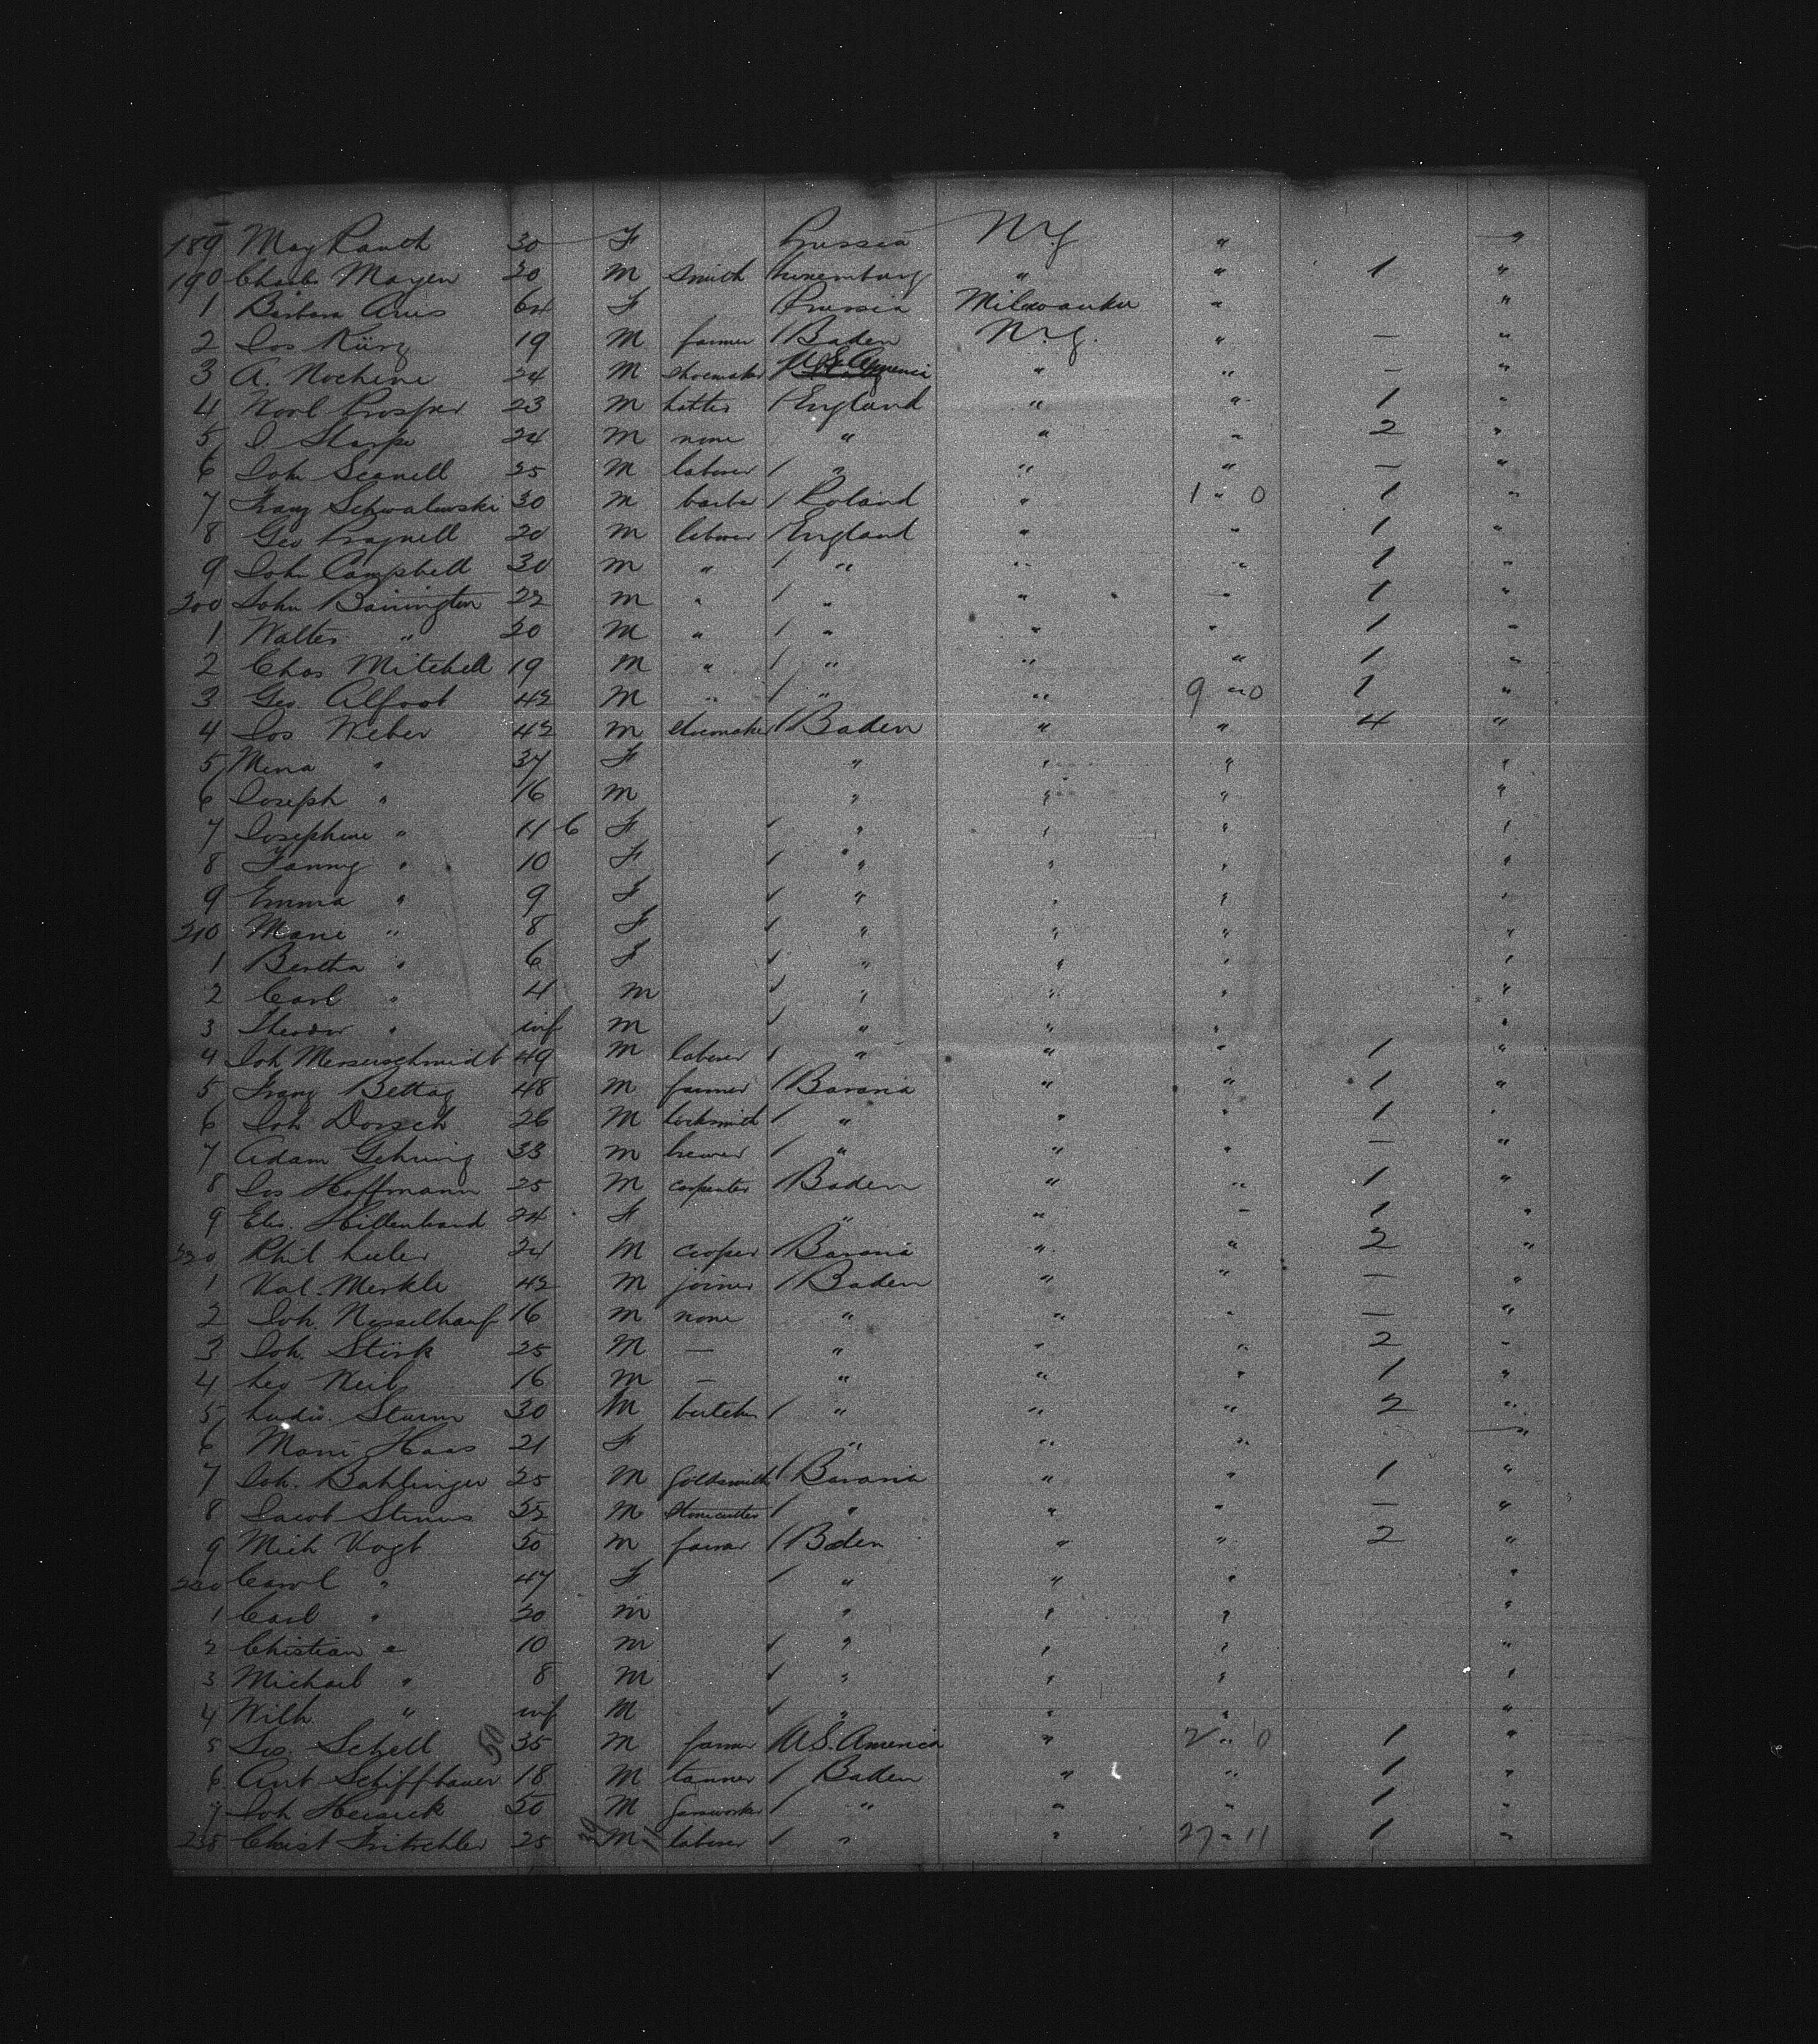 189 May Rauth 30 F Prussia N.Y. "
190 Charles Mayen 20 M Smith Luxemburg " " 1 "
1 Barbara Arus 64 F Prussia Milwaukee " "
2 Jos Kürz 19 M farmer Baden N.Y. " — "
3 A. Nochene 24 M shoemaker " " — "
4 Prosper 23 M hatter England " " 1 "
5 J Sharpe 24 M none " " " 2 "
6 Joh Scanell 25 M laborer " " " — "
7 Franz Schwalewski 30 M barber Poland " 1 " 0 1 "
8 Geo Pragnell 20 M laborer England " " 1 "
9 John Campbell 30 M " " " " 1 "
200 John Bainington 22 M " " " " 1 "
1 Walter " 20 M " " " " 1 "
2 Chas Mitchell 19 M " " " " 1 "
3 Geo Alfoot 42 M " " " 9 " 0 1 "
4 Jos Weber 42 M shoemaker Baden " " 4 "
5 Mina " 37 F " " " "
6 Joseph " 16 M " " " "
7 Josephine " 11 6 F " " " "
8 Fanny " 10 F " " " "
9 Emma " 9 F " " " "
210 Marie " 8 F " " " "
1 Bertha " 6 F " " " "
2 Carl " 4 M " " " "
3 Theodor " inf M " " " "
4 Joh Messerschmidt 49 M laborer " " " 1 "
5 Franz Bettag 48 M farmer Bavaria " " 1 "
6 Joh Dorsch 26 M locksmith " " " 1 "
7 Adam Gehring 33 M brewer " " " — "
8 Jos Hoffmann 25 M carpenter Baden " " 1 "
9 Elis. Hillenbrand 24 F " " " 1 "
220 Phil 24 M cooper Bavaria " " 2 "
1 Val. Merkle 42 M joiner Baden " " — "
2 Joh. Nesselhauf 16 M none " " " — "
3 Joh. Störk 25 M — " " " 2 "
4 Leo Keil 16 M — " " " 1 "
5 Ludw. Sturm 30 M butcher " " " 2 "
6 Marie Haas 21 F " " " "
7 Joh. Bahlinger 25 M Goldsmith Bavaria " " 1 "
8 Jacob 52 M Stonecutter " " " — "
9 Mich Vogt 50 M farmer Baden " " 2 "
230 Carol " 47 F " " " "
1 Carl " 20 M " " " "
2 Christian " 10 M " " " "
3 Michael " 8 M " " " "
4 Wilh " inf M " " " "
5 Jos. Schell 35 M farmer U.S. America " 2 " 0 1 "
50
6 Ant Schiffhauer 18 M tanner Baden " " 1 "
7 Joh 50 M " " " 1 "
238 Christ Fritschler 25 M laborer " " 27 " 11 1 "